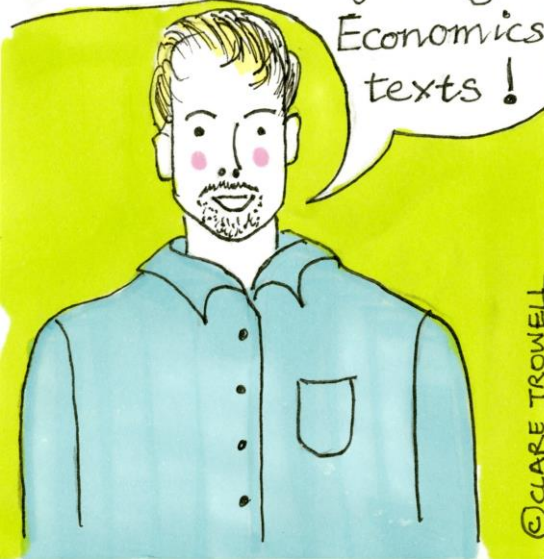 Economics
texts !
©CLARE TROWELL